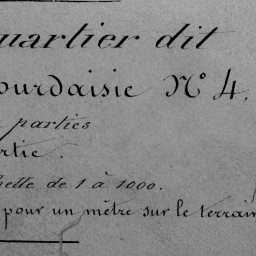 uartier dit
ourdaisie N° 4.
parties
rtie.
helle de 1 à 1000.
pour un mètre sur le terrain